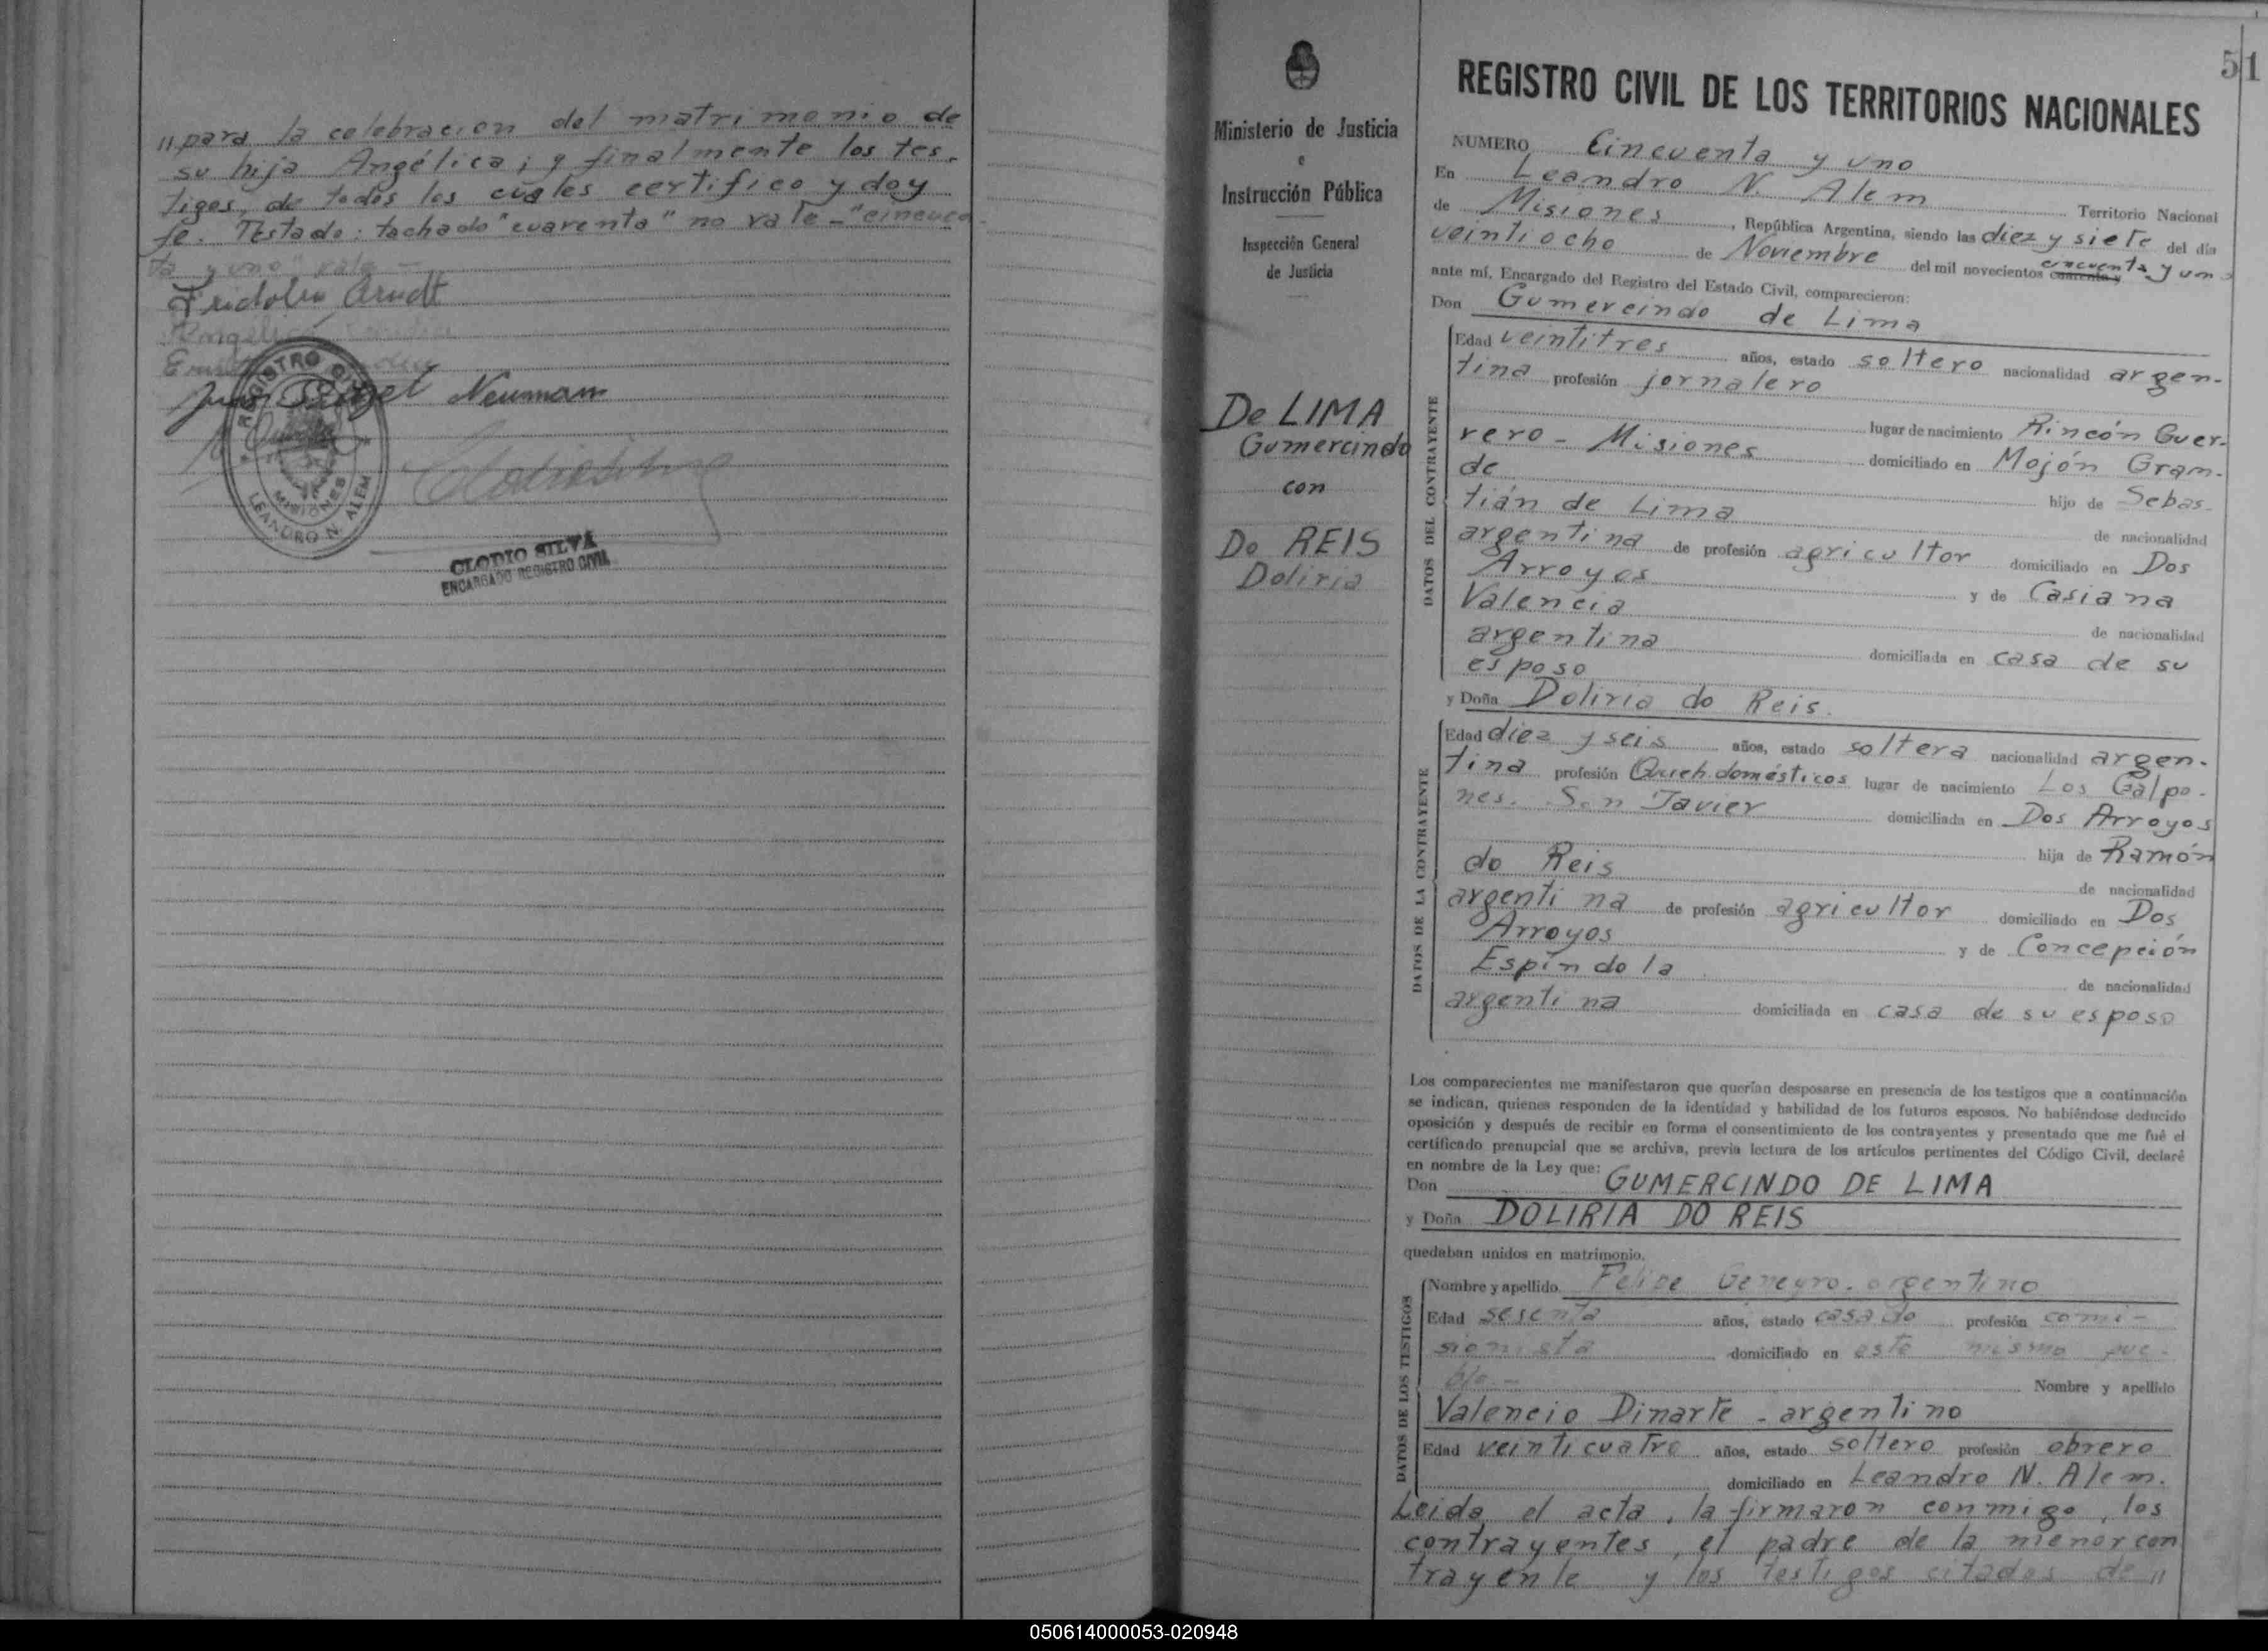 "para la celebracion del matrimonio de
su hija Angélica; y finalmente los tes-
tigos, de todos los cuales certifico y doy
fe. Testado: tachado "cuarenta" no vale - "cincuen
ta y uno" vale -
Fridolin Arndt
Neuman
REGISTRO CIVIL
MISIONES
LEANDRO N. ALEM
CLODIO SILVA
ENCARGADO REGISTRO CIVIL
Ministerio de Justicia
e
Instrucción Pública
Inspección General
de Justicia
De LIMA
Gumercindo
con
Do REIS
Doliria
51
REGISTRO CIVIL DE LOS TERRITORIOS NACIONALES
NUMERO Cincuenta y uno
En Leandro N. Alem Territorio Nacional
de Misiones, República Argentina, siendo las diez y siete del día
veintiocho de Noviembre del mil novecientos cuarenta y cincuenta y uno
ante mí, Encargado del Registro del Estado Civil, comparecieron:
Don Gumercindo de Lima
DATOS DEL CONTRAYENTE
Edad veintitres años, estado soltero nacionalidad argen-
tina profesión jornalero
lugar de nacimiento Rincón Guer-
rero - Misiones domiciliado en Mojón Gran-
de hijo de Sebas-
tián de Lima de nacionalidad
argentina de profesión agricultor domiciliado en Dos
Arroyos y de Casiana
Valencia de nacionalidad
argentina domiciliada en casa de su
esposo
y Doña Doliria do Reis.
DATOS DE LA CONTRAYENTE
Edad diez y seis años, estado soltera nacionalidad argen-
tina profesión Queh. domésticos lugar de nacimiento Los Galpo-
nes. San Javier domiciliada en Dos Arroyos
hija de Ramón
do Reis de nacionalidad
argentina de profesión agricultor domiciliado en Dos
Arroyos y de Concepción
Espíndola de nacionalidad
argentina domiciliada en casa de su esposo
Los comparecientes me manifestaron que querían desposarse en presencia de los testigos que a continuación
se indican, quienes responden de la identidad y habilidad de los futuros esposos. No habiéndose deducido
oposición y después de recibir en forma el consentimiento de los contrayentes y presentado que me fué el
certificado prenupcial que se archiva, previa lectura de los artículos pertinentes del Código Civil, declaré
en nombre de la Ley que:
Don GUMERCINDO DE LIMA
y Doña DOLIRIA DO REIS
quedaban unidos en matrimonio.
DATOS DE LOS TESTIGOS
Nombre y apellido Felipe argentino
Edad sesenta años, estado casado profesión comi-
sionista domiciliado en este mismo pue-
blo - Nombre y apellido
Valencio Dinarte - argentino
Edad veinticuatro años, estado soltero profesión obrero
domiciliado en Leandro N. Alem.
Leida el acta, la firmaron conmigo, los
contrayentes, el padre de la menor con
trayente y los testigos citados de "
050614000053-020948